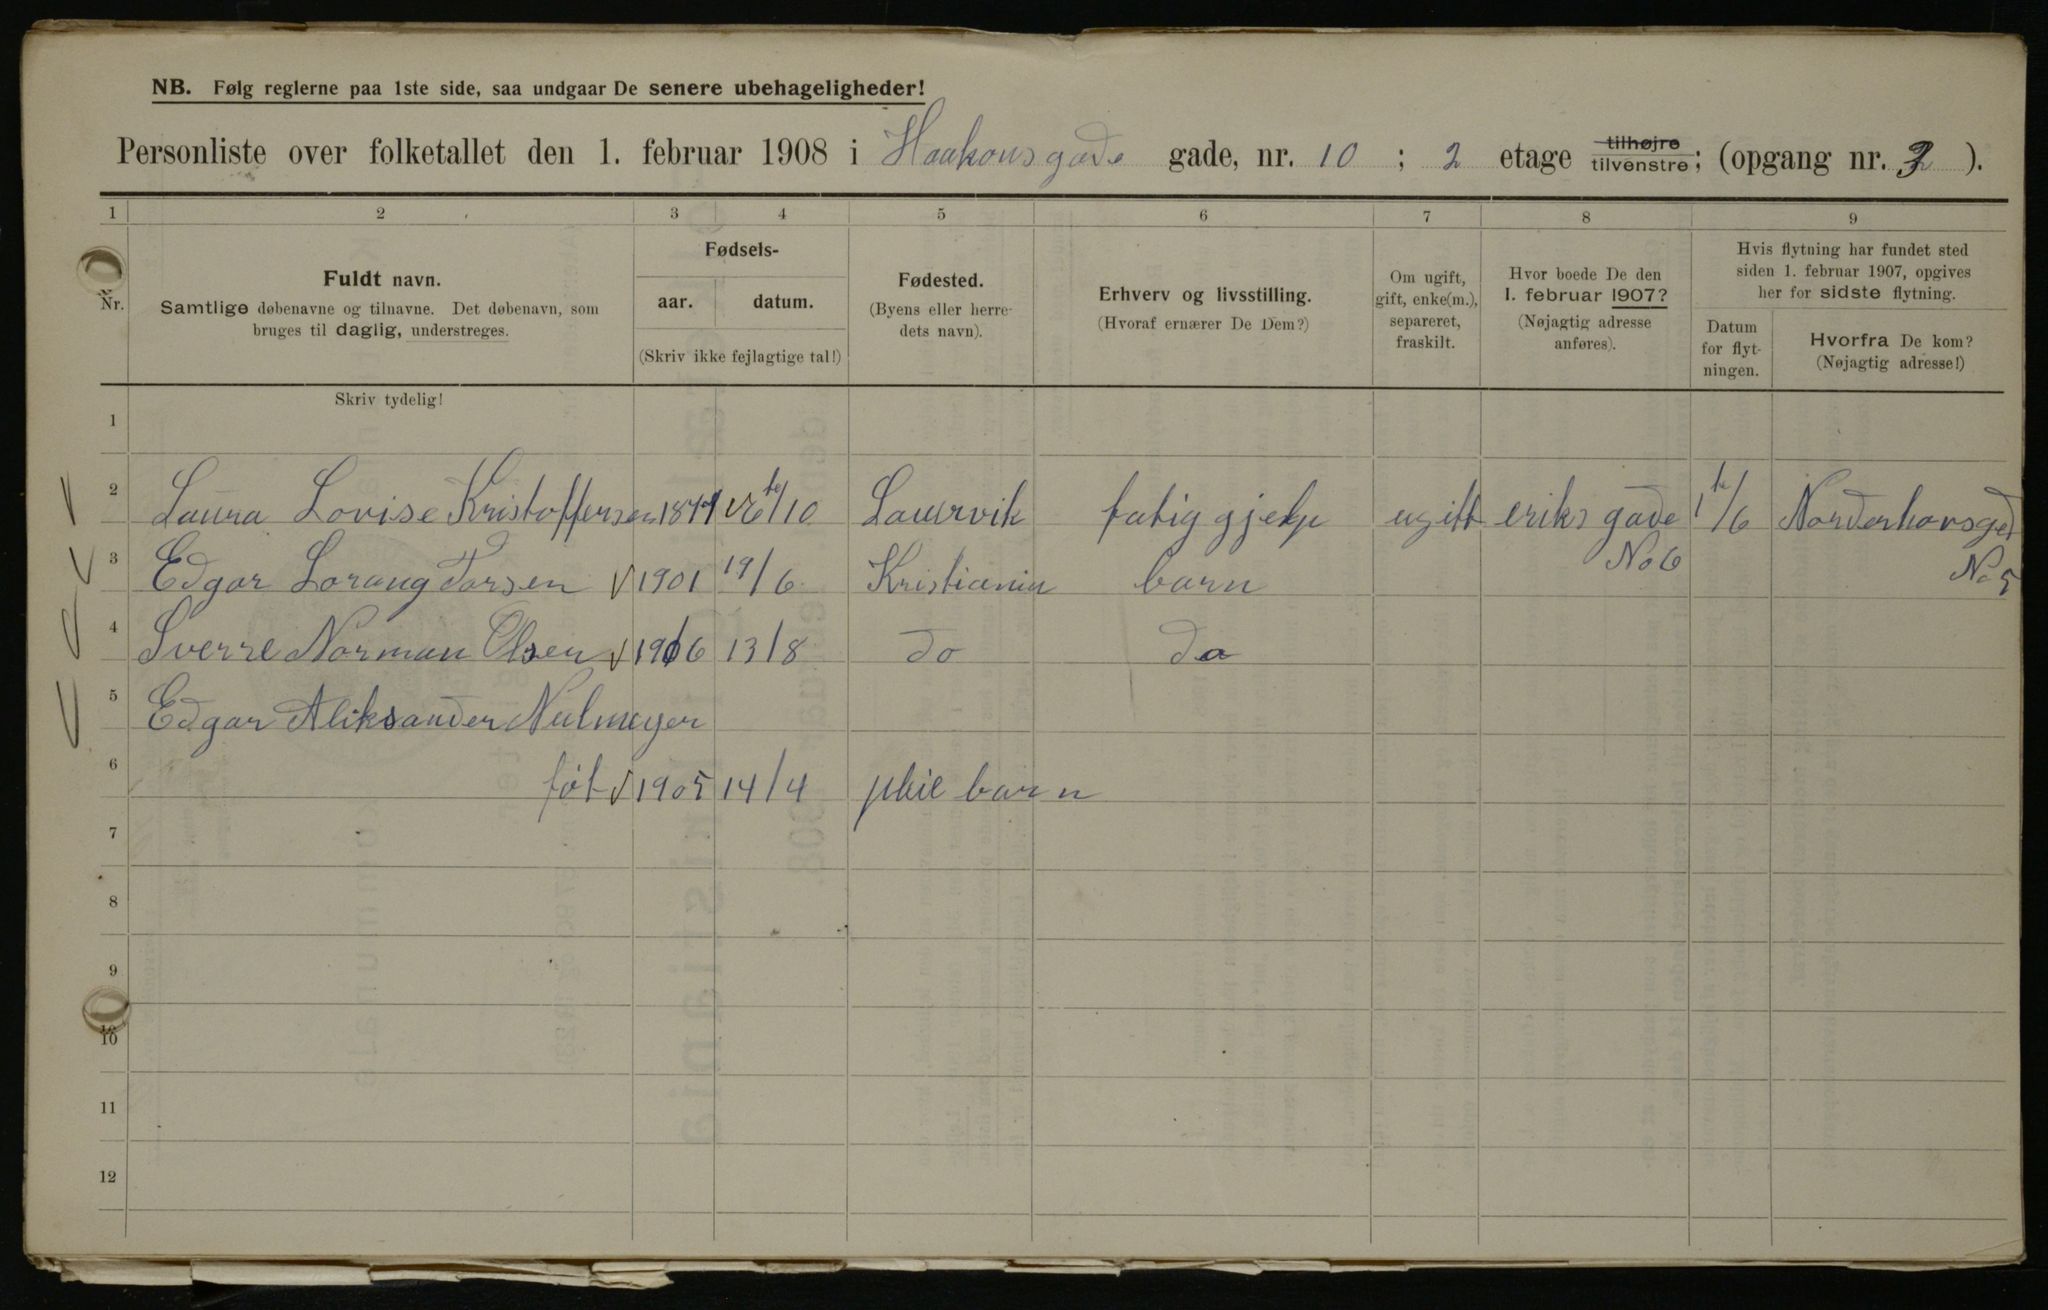 NB. Følg reglerne paa 1ste side, saa undgaar De senere ubehageligheder!
Personliste over folketallet den 1. februar 1908 i Haakonsgade gade, nr. 10 ; 2 etage tilhøjre tilvenstre; (opgang nr. 2 ).
1 2 3 4 5 6 7 8 9
Nr.
Fuldt navn.
Samtlige døbenavne og tilnavne. Det døbenavn, som
bruges til daglig, understreges.
Fødsels-
aar. datum.
(Skriv ikke fejlagtige tal!)
Fødested.
(Byens eller herre-
dets navn).
Erhverv og livsstilling.
(Hvoraf ernærer De Dem?)
Om ugift,
gift, enke(m.),
separeret,
fraskilt.
Hvor boede De den
1. februar 1907?
(Nøjagtig adresse
anføres).
Hvis flytning har fundet sted
siden 1. februar 1907, opgives
her for sidste flytning.
Datum
for flyt-
ningen.
Hvorfra De kom?
(Nøjagtig adresse!)
Skriv tydelig!
1
2 Laura Lovise Kristoffersen /10 Laurvik fatig gjelp ugift eriks gade 1 te/6 Norderhovsged
3 Edgar Lorang Torsen 1901 19/6 Kristiania barn No 6 No 5
4 Sverre Norman Olsen 1906 13/8 do do
5 Edgar Aliksander Nulmeyer
6 føt 1905 14/4 plie barn
7
8
9
10
11
12